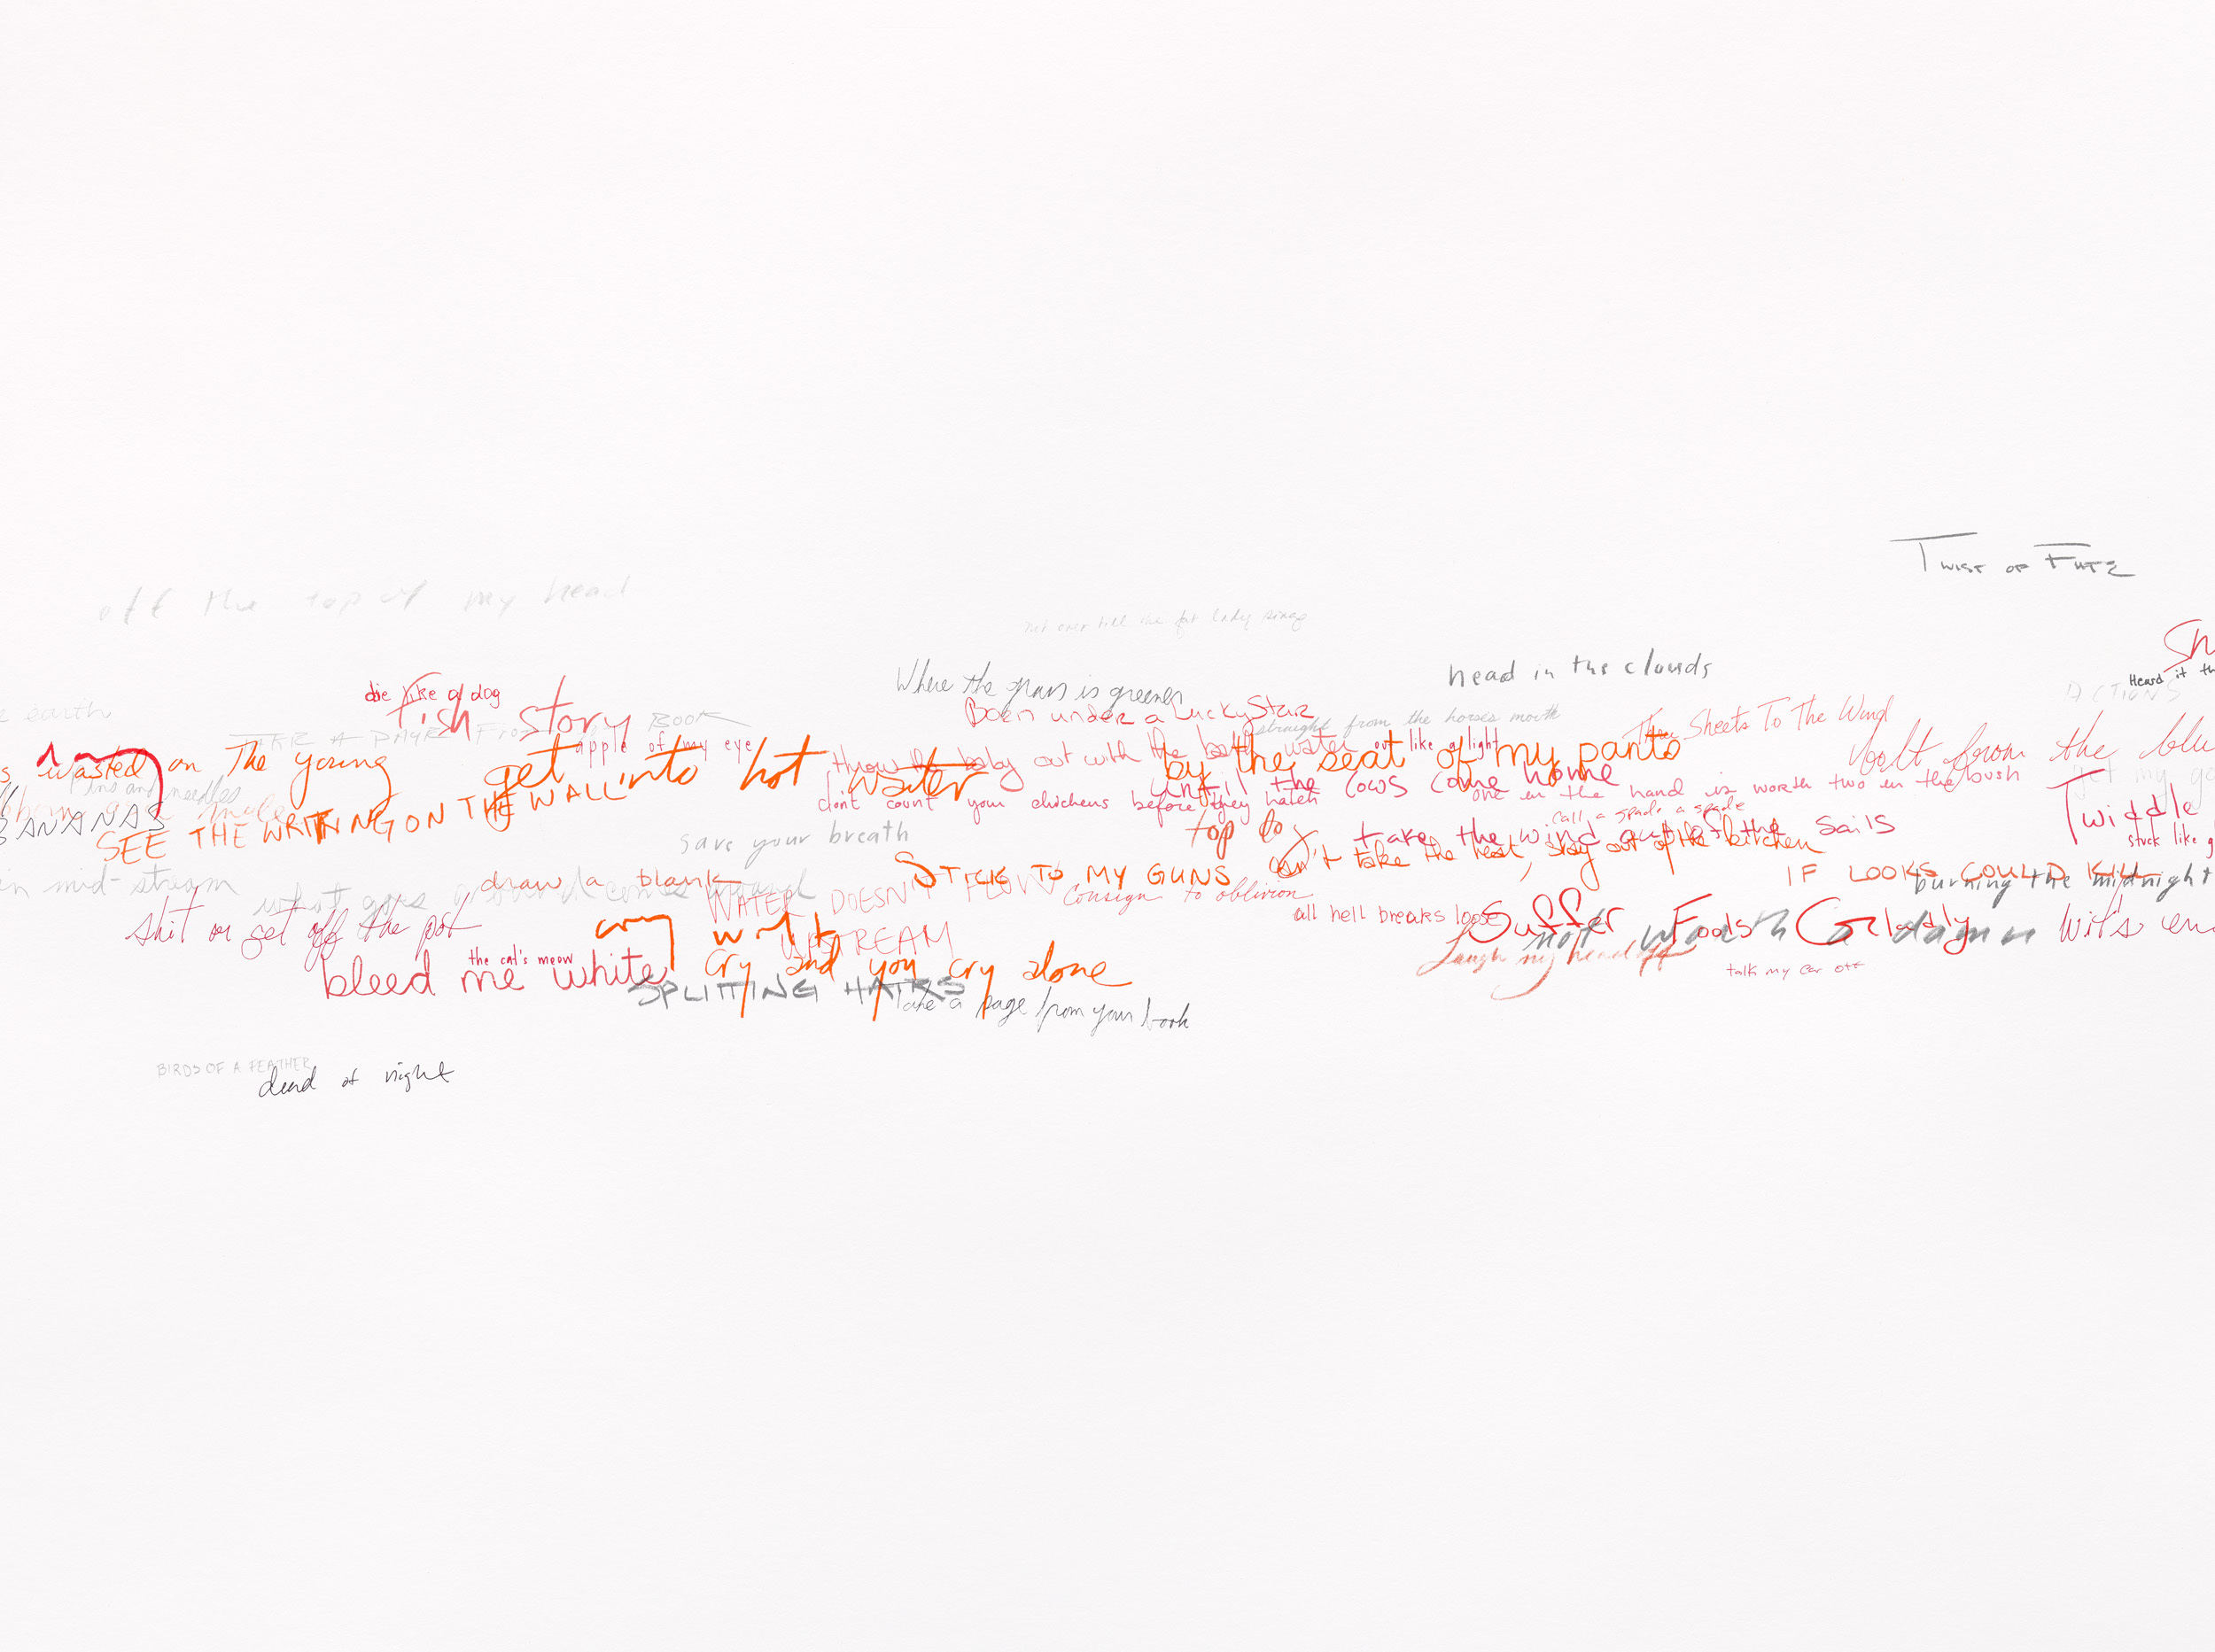 Twist of Fate
off the top of my head
not over till the fat lady sings
Sh
Heard it th
head in the clouds
Where the grass is greener
die like a dog
Fish Story
e earth
Born under a Lucky Star
straight from the horse's mouth
ACTIONS
TAKE A PAGE FROM BOOK
Three Sheets To The Wind
bolt from the blu
apple of my eye
out like a light
s wasted on The young
get into hot water
throw the baby out with the bath water
by the seat of my pants
until the cows come home
one in the hand is worth two in the bush
Pins and needles
don't count your chickens before they hatch
call a spade a spade
BANANAS
SEE THE WRITING ON THE WALL
Twiddle
stuck like g
save your breath
take the wind out of the sails
can't take the heat, stay out of the kitchen
in mid-stream
draw a blank
what goes around comes around
STICK TO MY GUNS
IF LOOKS COULD KILL
burning the midnight
WATER DOESN'T FLOW
UPSTREAM
Consign to oblivion
all hell breaks loose
Suffer Fools Gladly
not worth a damn
wit's en
shit or get off the pot
cry wolf
the cat's meow
bleed me white
cry and you cry alone
Laugh my head off
talk my ear off
SPLITTING HAIRS
take a page from your book
BIRDS OF A FEATHER
dead of night